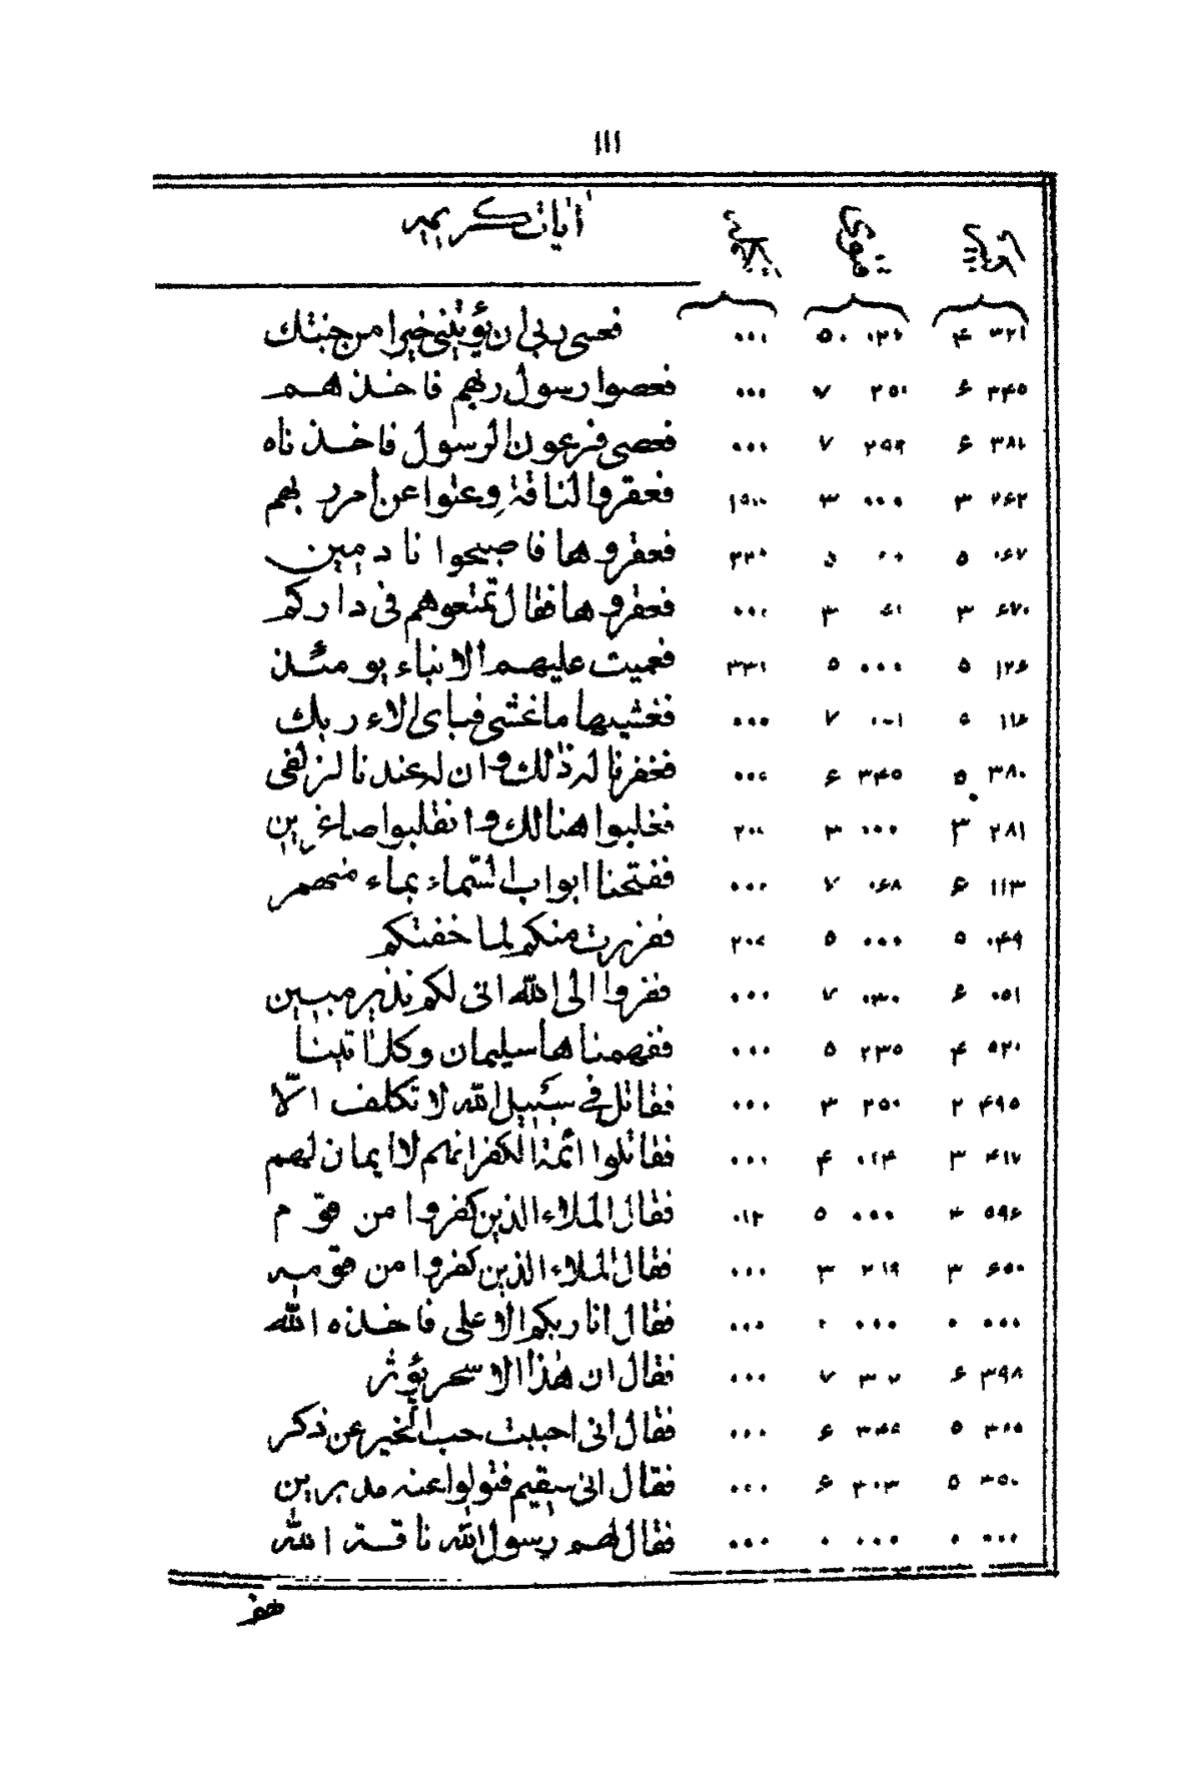 ١١١
آیات کریمه
٣٢١ ۴ ٥٠ ٠٠٠ فعسى ربى ان يؤتينى خيرا من جنتك
٣۴٥ ۶ ٢٥١ ٧ ٠٠٠ فعصوا رسول ربهم فاخذهم
٣٨١ ۶ ٢٥٩ ٧ ٠٠٠ فعصى فرعون الرسول فاخذناه
٢۶٢ ٣ ٠٠٠ ٣ ١٥٠٠ فعقروا لناقة وعتوا عن امر ربهم
٠۶٧ ٥ ٢٢٠ فعقروها فاصبحوا نادمين
۶٧٠ ٣ ٣ ٠٠٠ فعقروها فقال تمتعوهم فى داركم
١٢۶ ٥ ٠٠٠ ٥ ٣٣١ فعميت عليهم الانباء يومئذ
١١۶ ٧ ٠٠١ ٠٠٠ فغشيها ما غشى فباى الاء ربك
٣٨٠ ٥ ٣۴٥ ۶ ٠٠٠ فغفرنا له ذلك وان له عندنا لزلفى
٢٨١ ٣ ٠٠٠ ٣ ٢٠٠ فغلبوا هنالك وانقلبوا صاغرين
١١٣ ۶ ٠۶٨ ٧ ٠٠٠ ففتحنا ابواب السماء بماء منهمر
٠۴٩ ٥ ٠٠٠ ٥ ففررت منكم لما خفتكم
٠٥١ ۶ ٠٣٠ ٧ ٠٠٠ ففروا الى الله انى لكم نذير مبين
٥٢٠ ۴ ٢٣٥ ٥ ٠٠٠ ففهمناها سليمان وكلا اتينا
۴٩٥ ٢ ٢٥٠ ٣ ٠٠٠ فقاتل فى سبيل الله لا تكلف الّا
۴١٧ ٣ ٠١۴ ۴ ٠٠٠ فقاتلوا ائمة الكفر انهم لا ايمان لهم
٥٩۶ ۴ ٠٠٠ ٥ ٠١٢ فقال الملاء الذين كفروا من قوم
۶٥٠ ٣ ٢١٩ ٣ ٠٠٠ فقال الملاء الذين كفروا من قومه
٠٠٠ ٠ ٠٠٠ ٠ ٠٠٠ فقال انا ربكم الاعلى فاخذه الله
٣٩٨ ۶ ٧ ٠٠٠ فقال ان هذا الا سحر يؤثر
٥ ۶ ٠٠٠ فقال انى احببت حب الخير عن ذكر
٣٥٠ ٥ ٣٠٣ ۶ ٠٠٠ فقال انى سقيم فتولوا عنه مدبرين
٠٠٠ ٠ ٠٠٠ ٠ ٠٠٠ فقال لهم رسول الله ناقة الله